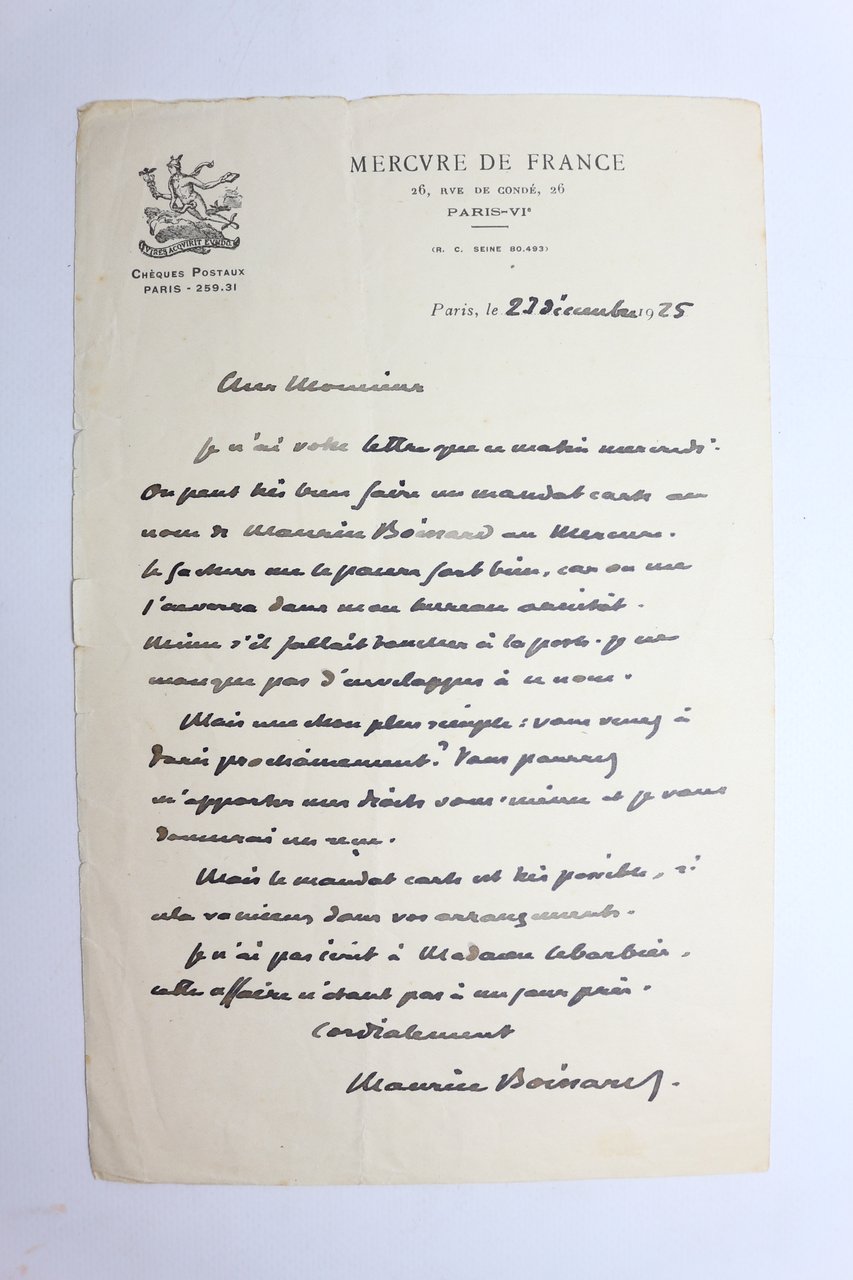 MERCVRE DE FRANCE
26, RVE DE CONDÉ, 26
PARIS-VIᵉ
(R. C. SEINE 80.493)
VIRES ACQVIRIT EVNDO
CHÈQUES POSTAUX
PARIS - 259.31
Paris, le 23 décembre 1925
Cher Monsieur
Je n'ai votre lettre que ce matin mercredi.
On peut très bien faire un mandat carte au
nom de Maurice Boissard au Mercure.
Le facteur me le paiera fort bien, car on me
l'enverra dans mon bureau aussitôt.
Même s'il fallait toucher à la poste. je ne
manque pas d'enveloppes à ce nom.
Mais une chose plus simple : vous venez à
Paris prochainement ? Vous pourrez
m'apporter mes droits vous-même et je vous
donnerai un reçu.
Mais le mandat carte est très possible, si
cela va mieux dans vos arrangements.
Je n'ai pas écrit à Madame Lebarbier,
cette affaire n'étant pas à un jour près.
Cordialement
Maurice Boissard.